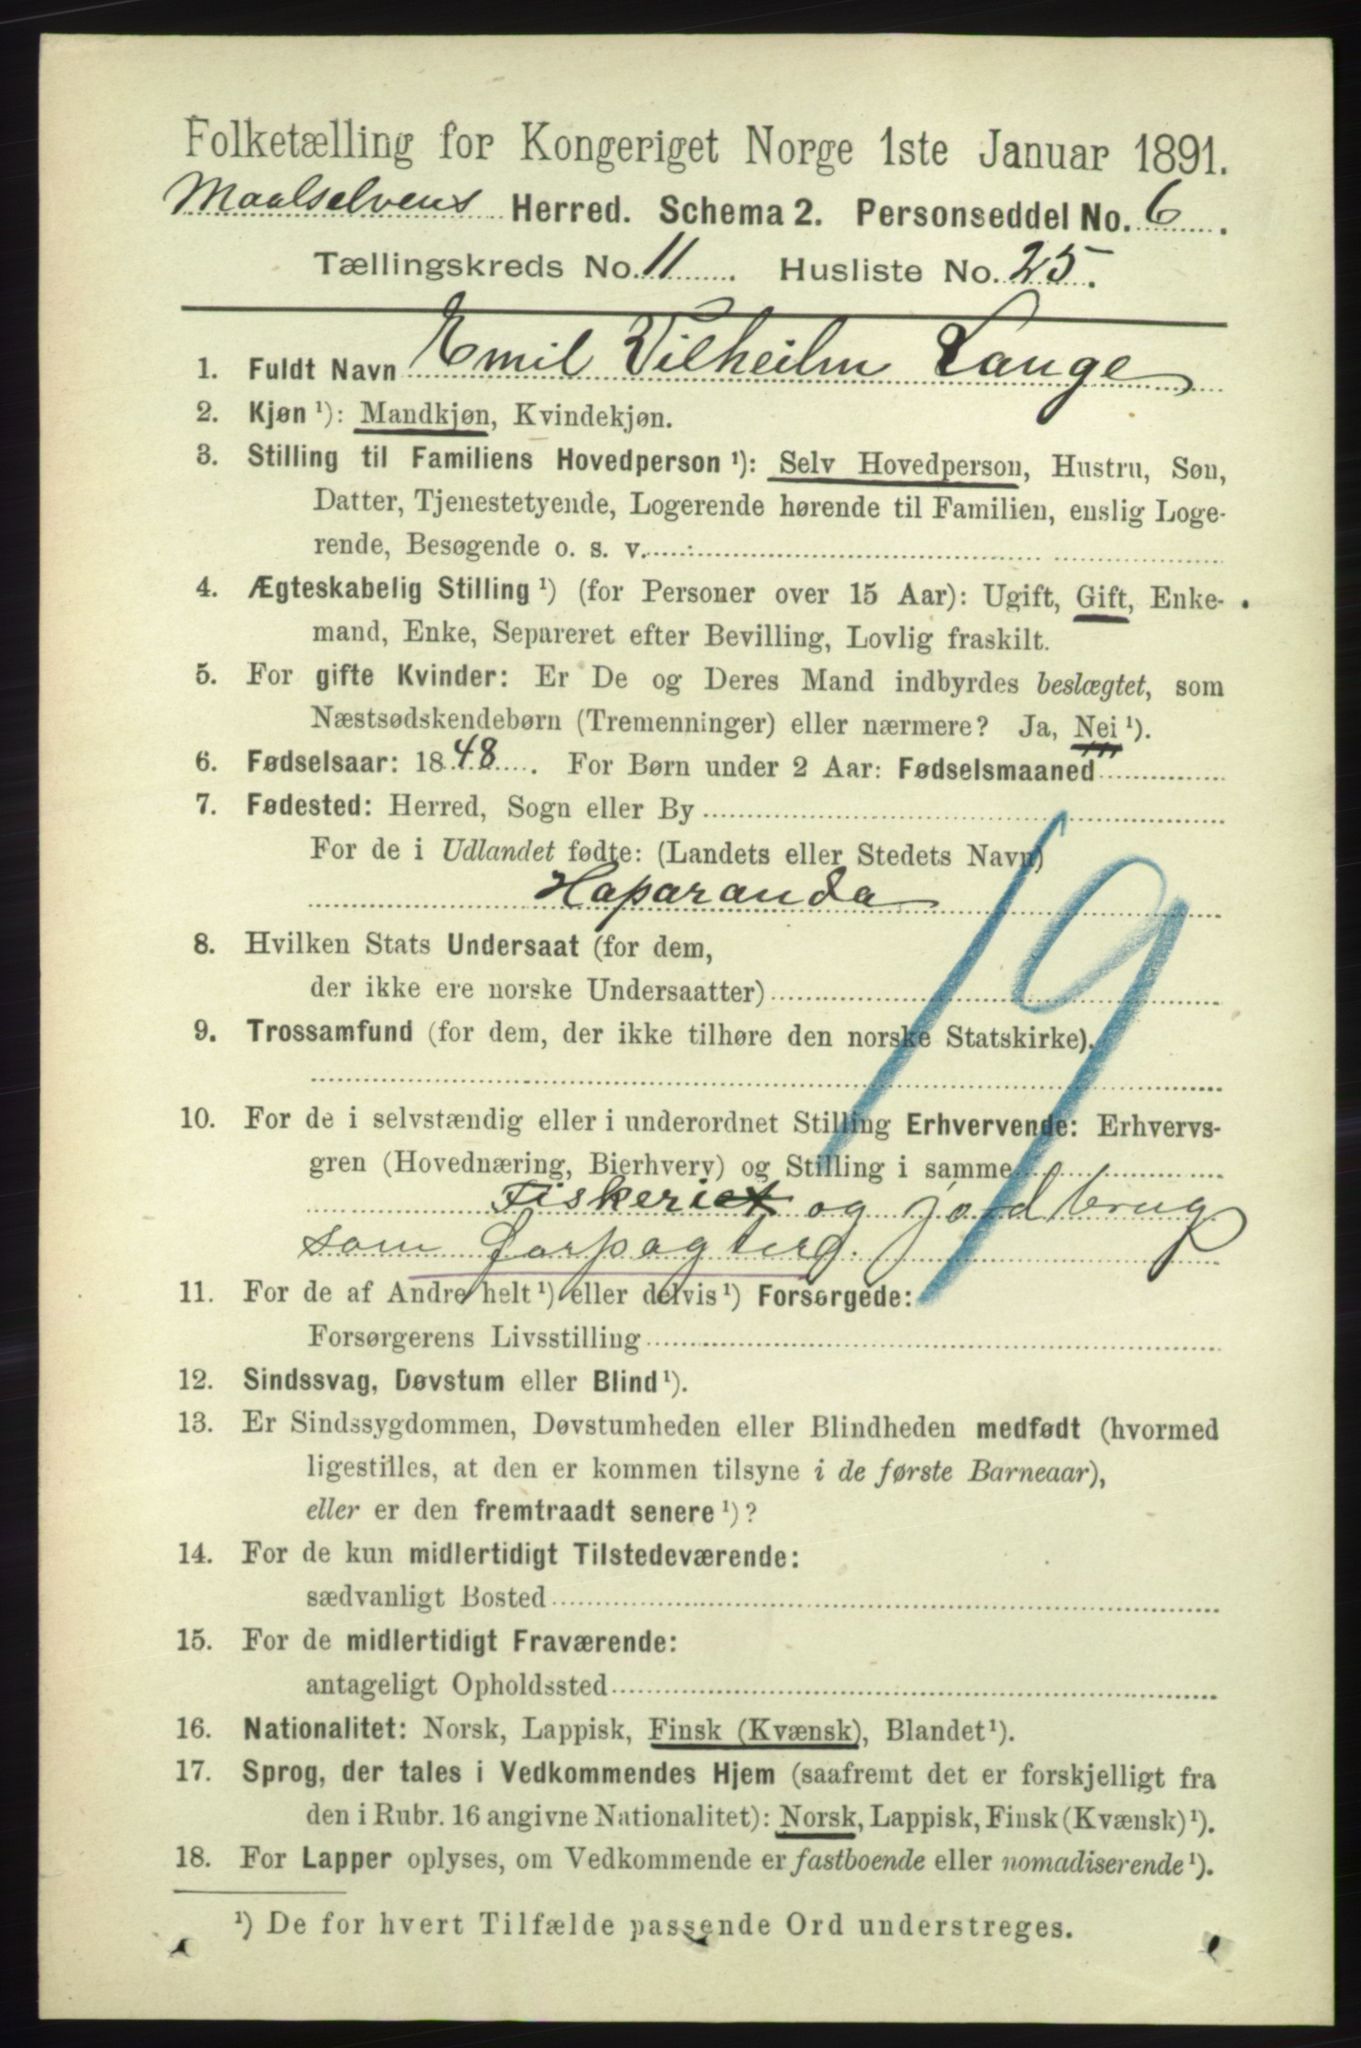 Folketælling for Kongeriget Norge 1ste Januar 1891.
Maalselvens Herred. Schema 2. Personseddel No. 6.
Tællingskreds No. 11. Husliste No. 25.
1. Fuldt Navn Emil Vilheilm Lange
2. Kjøn ¹): Mandkjøn, Kvindekjøn.
3. Stilling til Familiens Hovedperson ¹): Selv Hovedperson, Hustru, Søn,
Datter, Tjenestetyende, Logerende hørende til Familien, enslig Loge-
rende, Besøgende o. s. v.
4. Ægteskabelig Stilling ¹) (for Personer over 15 Aar): Ugift, Gift, Enke-
mand, Enke, Separeret efter Bevilling, Lovlig fraskilt.
5. For gifte Kvinder: Er De og Deres Mand indbyrdes beslægtet, som
Næstsødskendebørn (Tremenninger) eller nærmere? Ja, Nei ¹).
6. Fødselsaar: 1848. For Børn under 2 Aar: Fødselsmaaned
7. Fødested: Herred, Sogn eller By
For de i Udlandet fødte: (Landets eller Stedets Navn)
Haparanda
8. Hvilken Stats Undersaat (for dem,
der ikke ere norske Undersaatter)
9. Trossamfund (for dem, der ikke tilhøre den norske Statskirke).
10. For de i selvstændig eller i underordnet Stilling Erhvervende: Erhvervs-
gren (Hovednæring, Bierhverv) og Stilling i samme
Fiskeriet og jordbrug
som forpagterg.
19
11. For de af Andre helt ¹) eller delvis ¹) Forsørgede:
Forsørgerens Livsstilling
12. Sindssvag, Døvstum eller Blind ¹).
13. Er Sindssygdommen, Døvstumheden eller Blindheden medfødt (hvormed
ligestilles, at den er kommen tilsyne i de første Barneaar),
eller er den fremtraadt senere ¹)?
14. For de kun midlertidigt Tilstedeværende:
sædvanligt Bosted
15. For de midlertidigt Fraværende:
antageligt Opholdssted
16. Nationalitet: Norsk, Lappisk, Finsk (Kvænsk), Blandet ¹).
17. Sprog, der tales i Vedkommendes Hjem (saafremt det er forskjelligt fra
den i Rubr. 16 angivne Nationalitet): Norsk, Lappisk, Finsk (Kvænsk) ¹).
18. For Lapper oplyses, om Vedkommende er fastboende eller nomadiserende ¹).
¹) De for hvert Tilfælde passende Ord understreges.